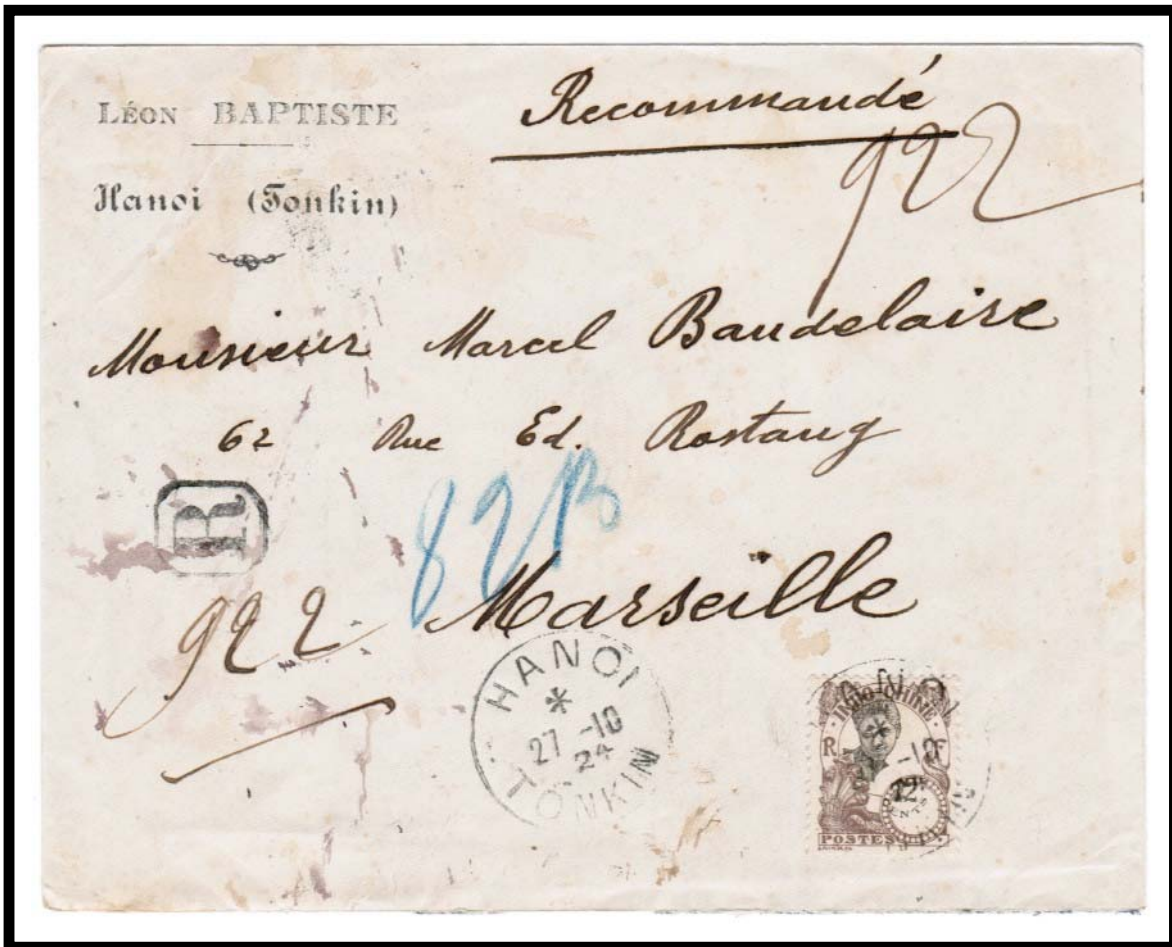 LÉON BAPTISTE
Hanoi (Tonkin)
Recommandé
922
Monsieur Marcel Baudelaire
62 Rue Ed. Rostang
R
82B
922
Marseille
HANOÏ
*
27 -10
24
TONKIN
INDO-CHINE
R F
12
POSTES